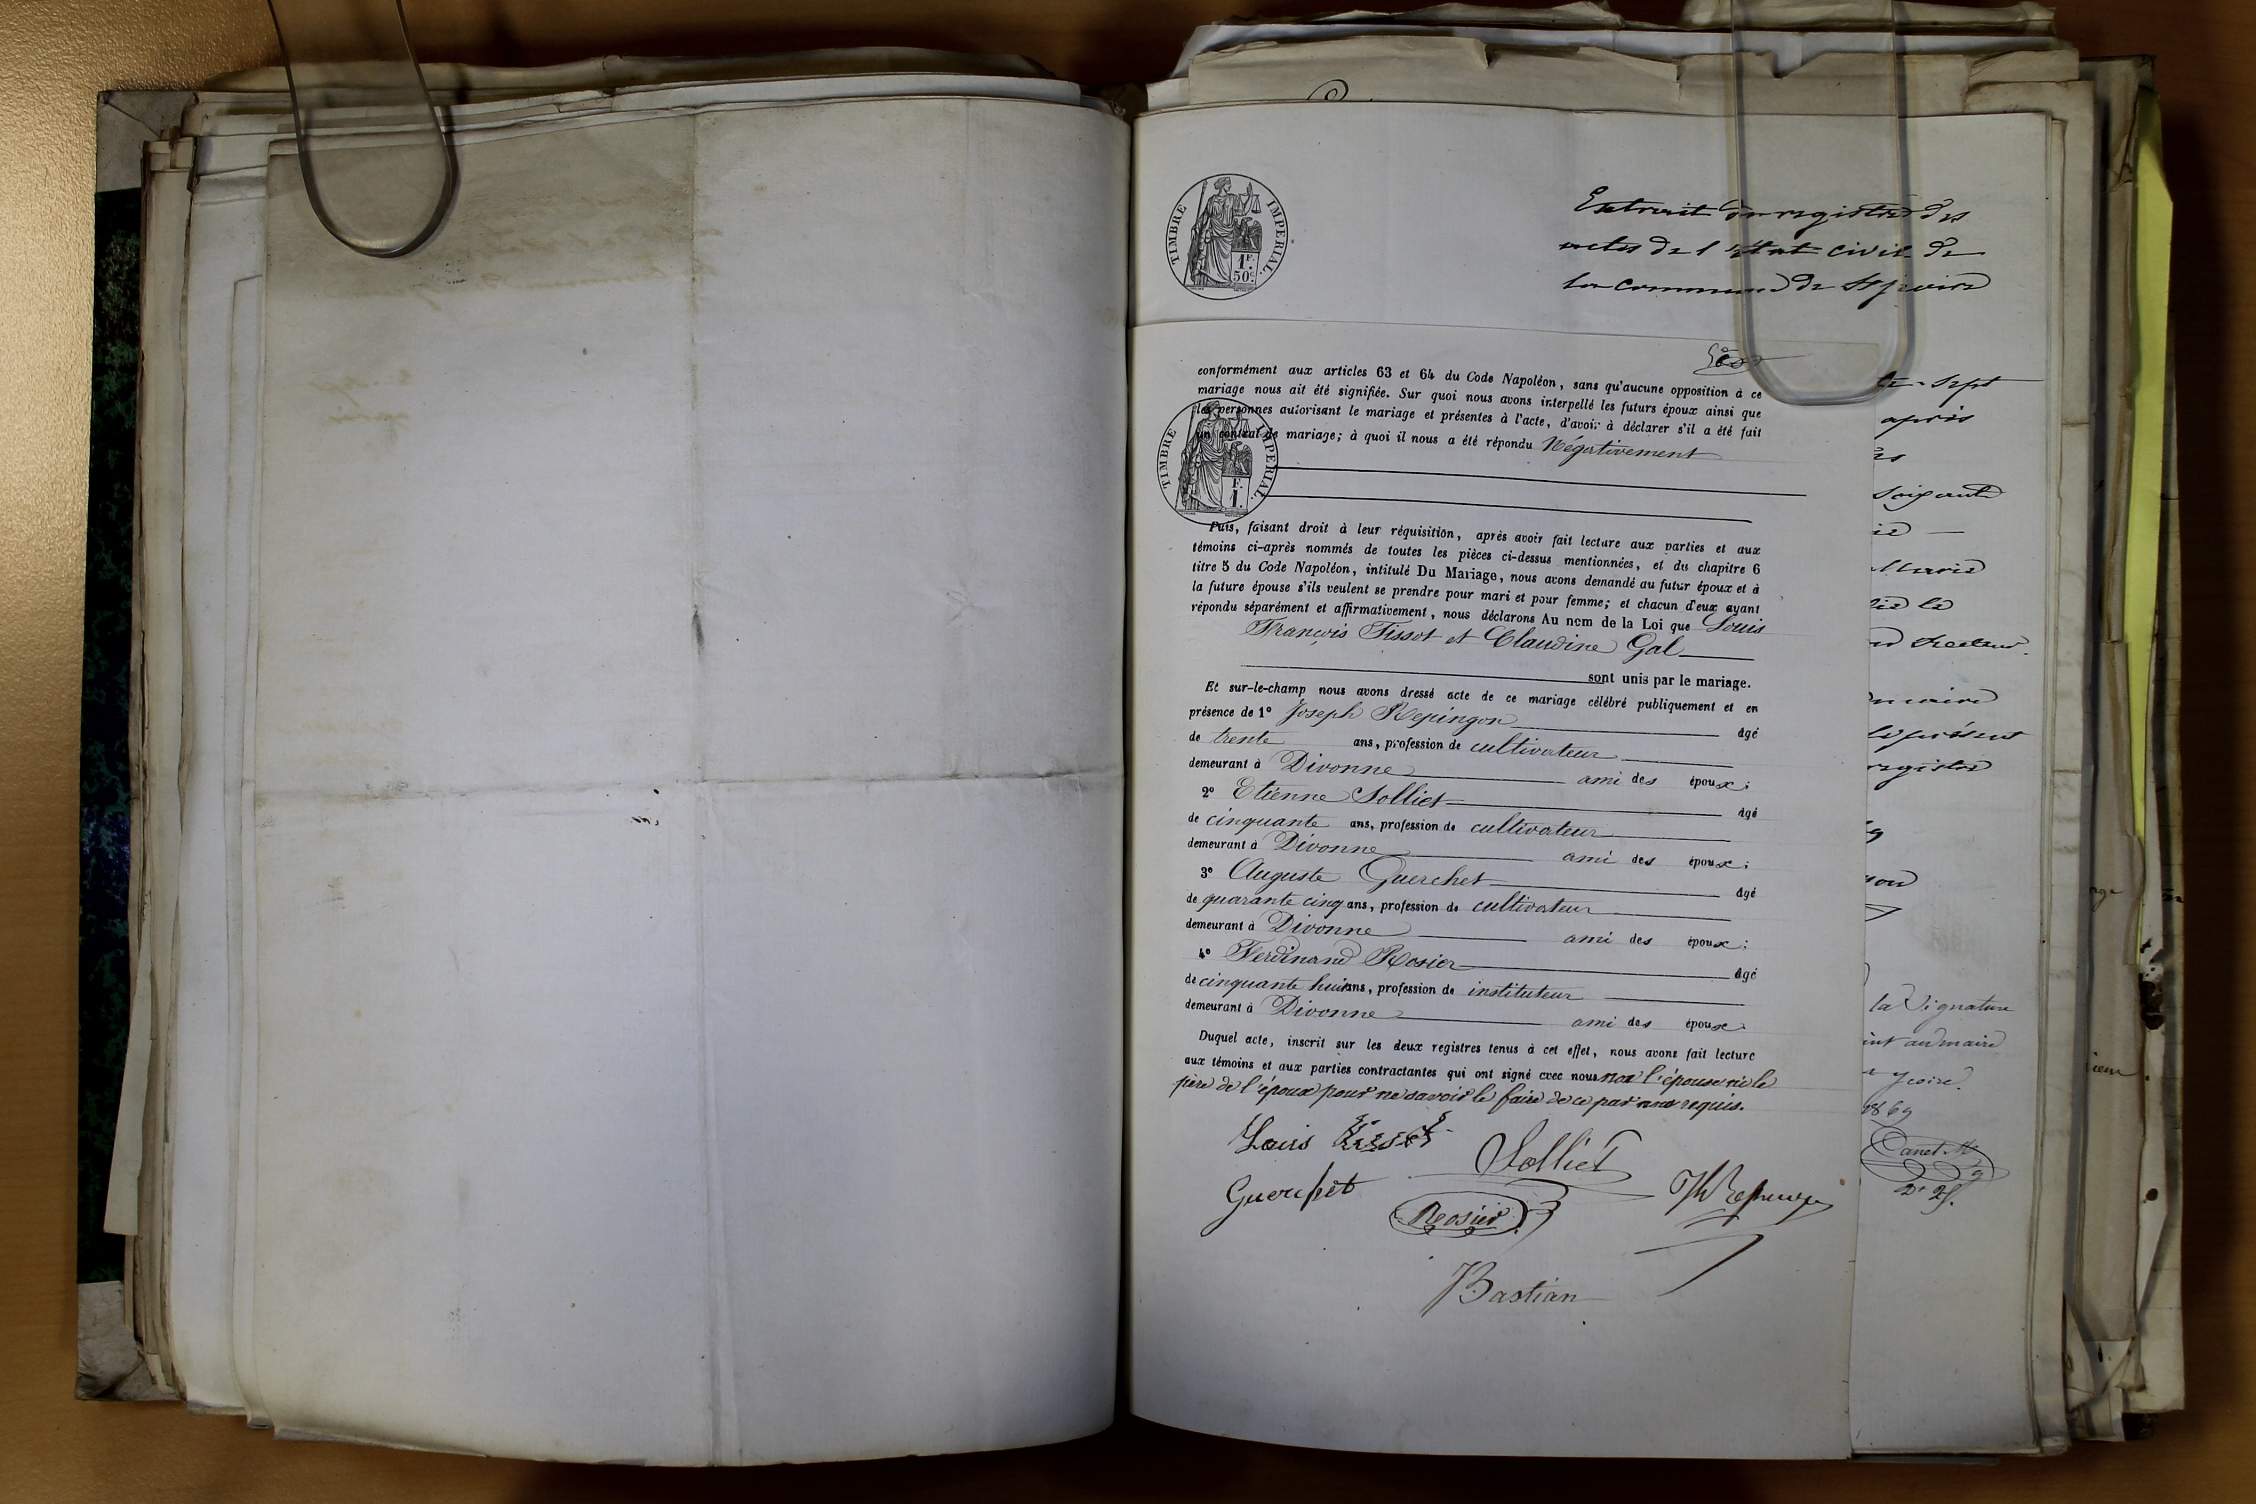 TIMBRE IMPERIAL.
1F.
50c.
Extrait du registre des
actes de l'état civil de
la commune de
conformément aux articles 63 et 64 du Code Napoléon, sans qu'aucune opposition à ce
mariage nous ait été signifiée. Sur quoi nous avons interpellé les futurs époux ainsi que
les personnes autorisant le mariage et présentes à l'acte, d'avoir à déclarer s'il a été fait
un contrat de mariage; à quoi il nous a été répondu Négativement
TIMBRE IMPERIAL.
F.
1.
Puis, faisant droit à leur réquisition, après avoir fait lecture aux parties et aux
témoins ci-après nommés de toutes les pièces ci-dessus mentionnées, et du chapitre 6
titre 5 du Code Napoléon, intitulé Du Mariage, nous avons demandé au futur époux et à
la future épouse s'ils veulent se prendre pour mari et pour femme; et chacun d'eux ayant
répondu séparément et affirmativement, nous déclarons Au nom de la Loi que Louis
François Tissot et Claudine Gal
sont unis par le mariage.
Et sur-le-champ nous avons dressé acte de ce mariage célébré publiquement et en
présence de 1° Joseph Repingon âgé
de trente ans, profession de cultivateur
demeurant à Divonne ami des époux;
2° Etienne Solliet âgé
de cinquante ans, profession de cultivateur
demeurant à Divonne ami des époux;
3° Auguste Guerchet âgé
de quarante cinq ans, profession de cultivateur
demeurant à Divonne ami des époux;
4° Ferdinand Rosier âgé
de cinquante huit ans, profession de instituteur
demeurant à Divonne ami des époux.
Duquel acte, inscrit sur les deux registres tenus à cet effet, nous avons fait lecture
aux témoins et aux parties contractantes qui ont signé avec nous non l'épouse ni le
père de l'époux pour ne savoir le faire de ce par nous requis.
Louis Tissot
Solliet
Guerchet
Rosier
Bastian
sept
après
soixante
le
du maire
le présent
registre
la signature
au maire
1869